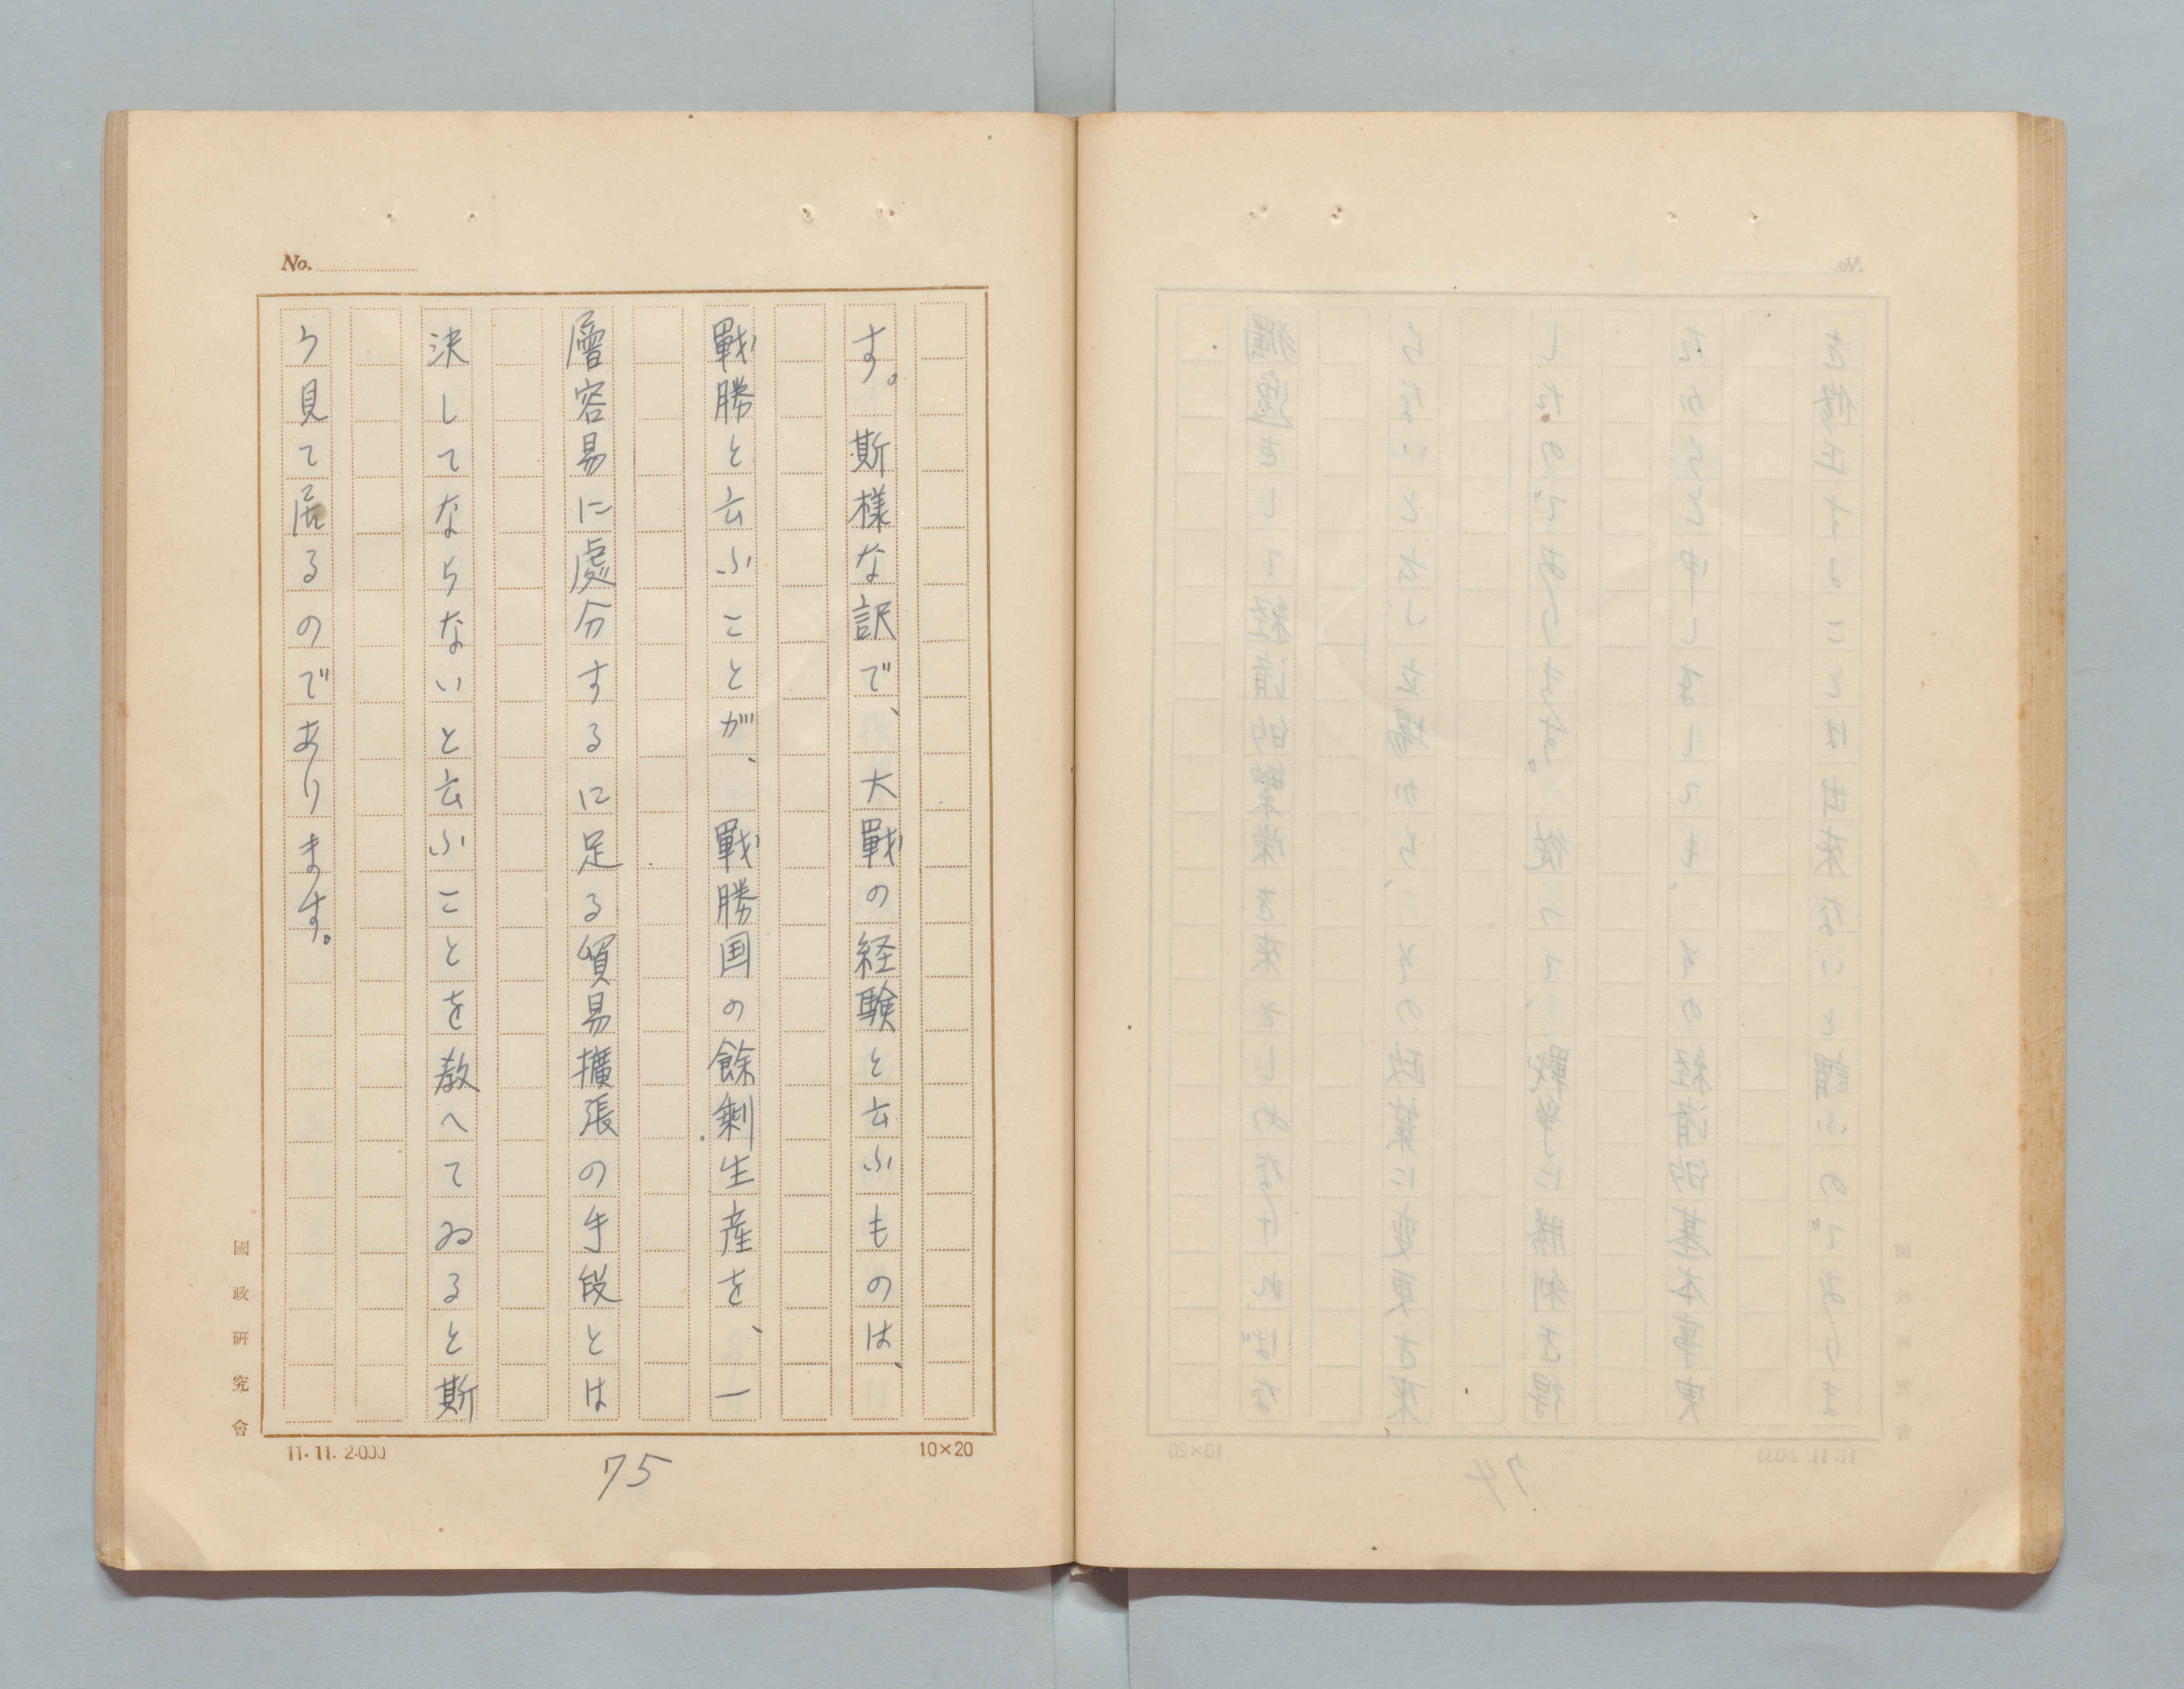 No.
す。斯様な訳で、大戰の経験と云ふものは、
戰勝と云ふことが、戰勝国の餘剰生産を、一
層容易に處分するに足る貿易擴張の手段とは
決してならないと云ふことを教へてゐると斯
う見て居るのであります。
國政研究會
11. 11. 2.000
75
10×20